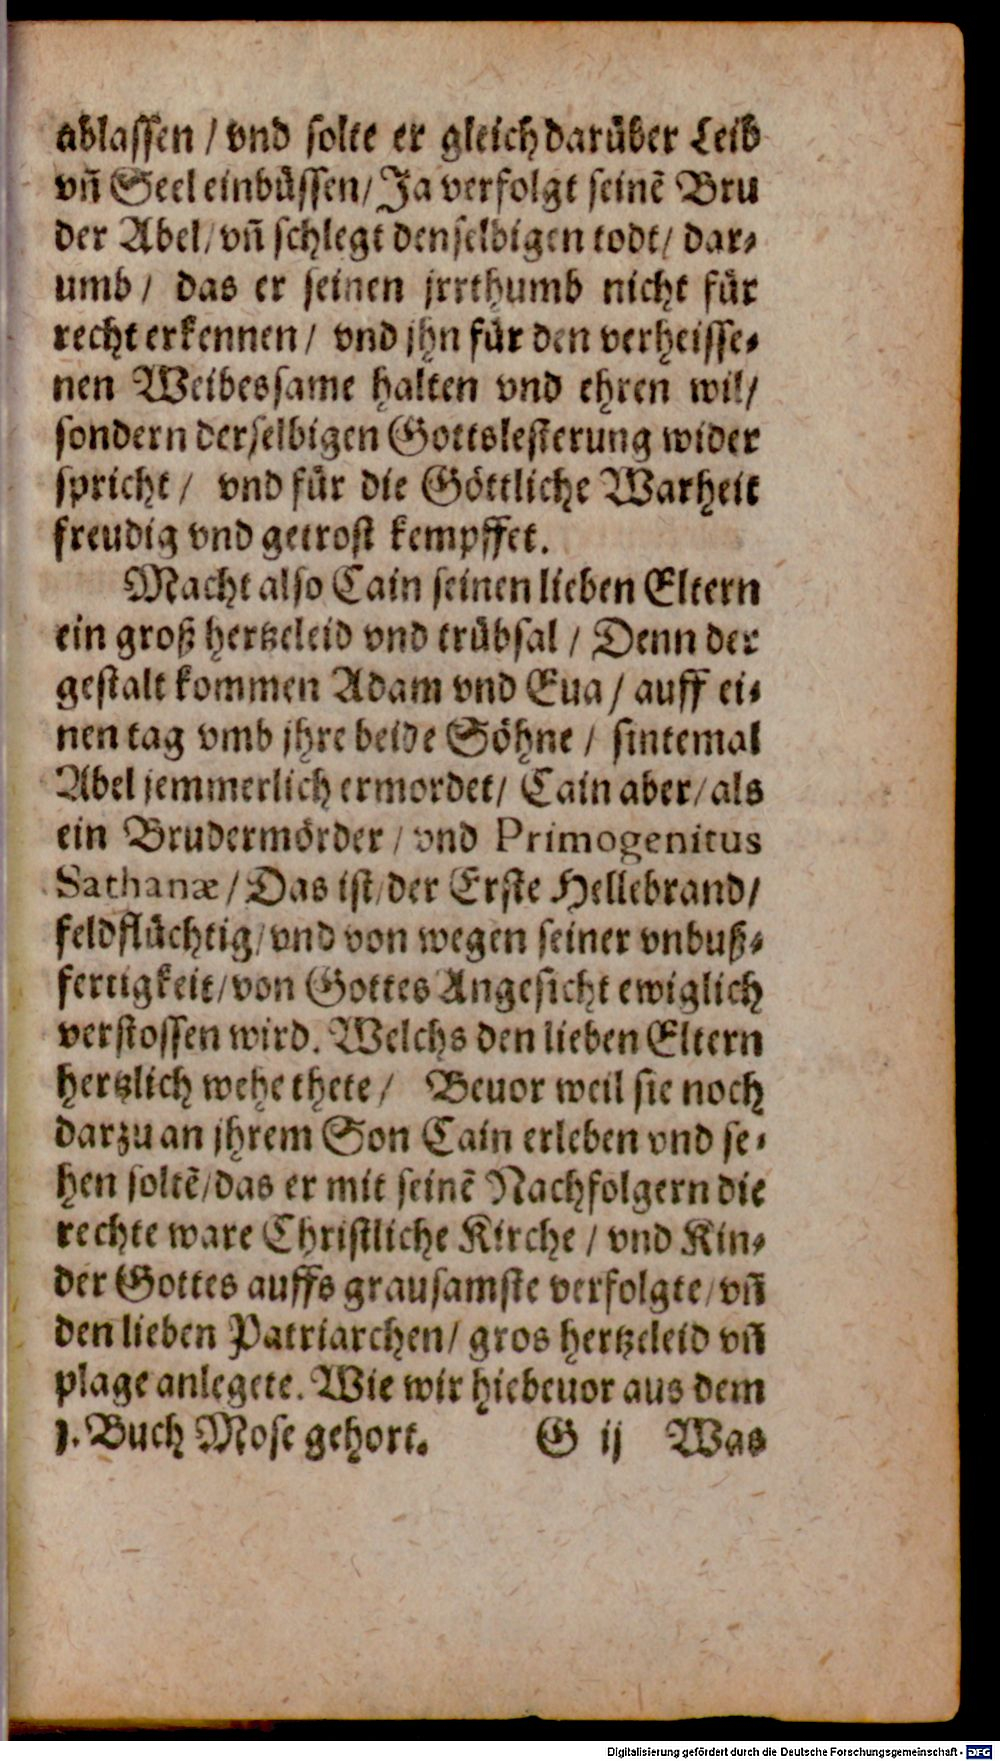 ablassen / vnd solte er gleich darüber Leib
vñ Seel einbüssen / Ja verfolgt seinē Bru
der Abel / vñ schlegt denselbigen todt / dar-
umb / das er seinen jrrthumb nicht für
recht erkennen / vnd jhn für den verheisse-
nen Weibessame halten vnd ehren wil /
sondern derselbigen Gottslesterung wider
spricht / vnd für die Göttliche Warheit
freudig vnd getrost kempffet.
Macht also Cain seinen lieben Eltern
ein groß hertzeleid vnd trübsal / Denn der
gestalt kommen Adam vnd Eua / auff ei-
nen tag vmb jhre beide Söhne / sintemal
Abel jemmerlich ermordet / Cain aber / als
ein Brudermörder / vnd Primogenitus
Sathanæ / Das ist / der Erste Hellebrand /
feldflüchtig / vnd von wegen seiner vnbuß-
fertigkeit / von Gottes Angesicht ewiglich
verstossen wird. Welchs den lieben Eltern
hertzlich wehe thete / Beuor weil sie noch
darzu an jhrem Son Cain erleben vnd se-
hen soltē / das er mit seinē Nachfolgern die
rechte ware Christliche Kirche / vnd Kin-
der Gottes auffs grausamste verfolgte / vñ
den lieben Patriarchen / gros hertzeleid vñ
plage anlegete. Wie wir hiebeuor aus dem
1. Buch Mose gehort. G ij Was
Digitalisierung gefördert durch die Deutsche Forschungsgemeinschaft - DFG